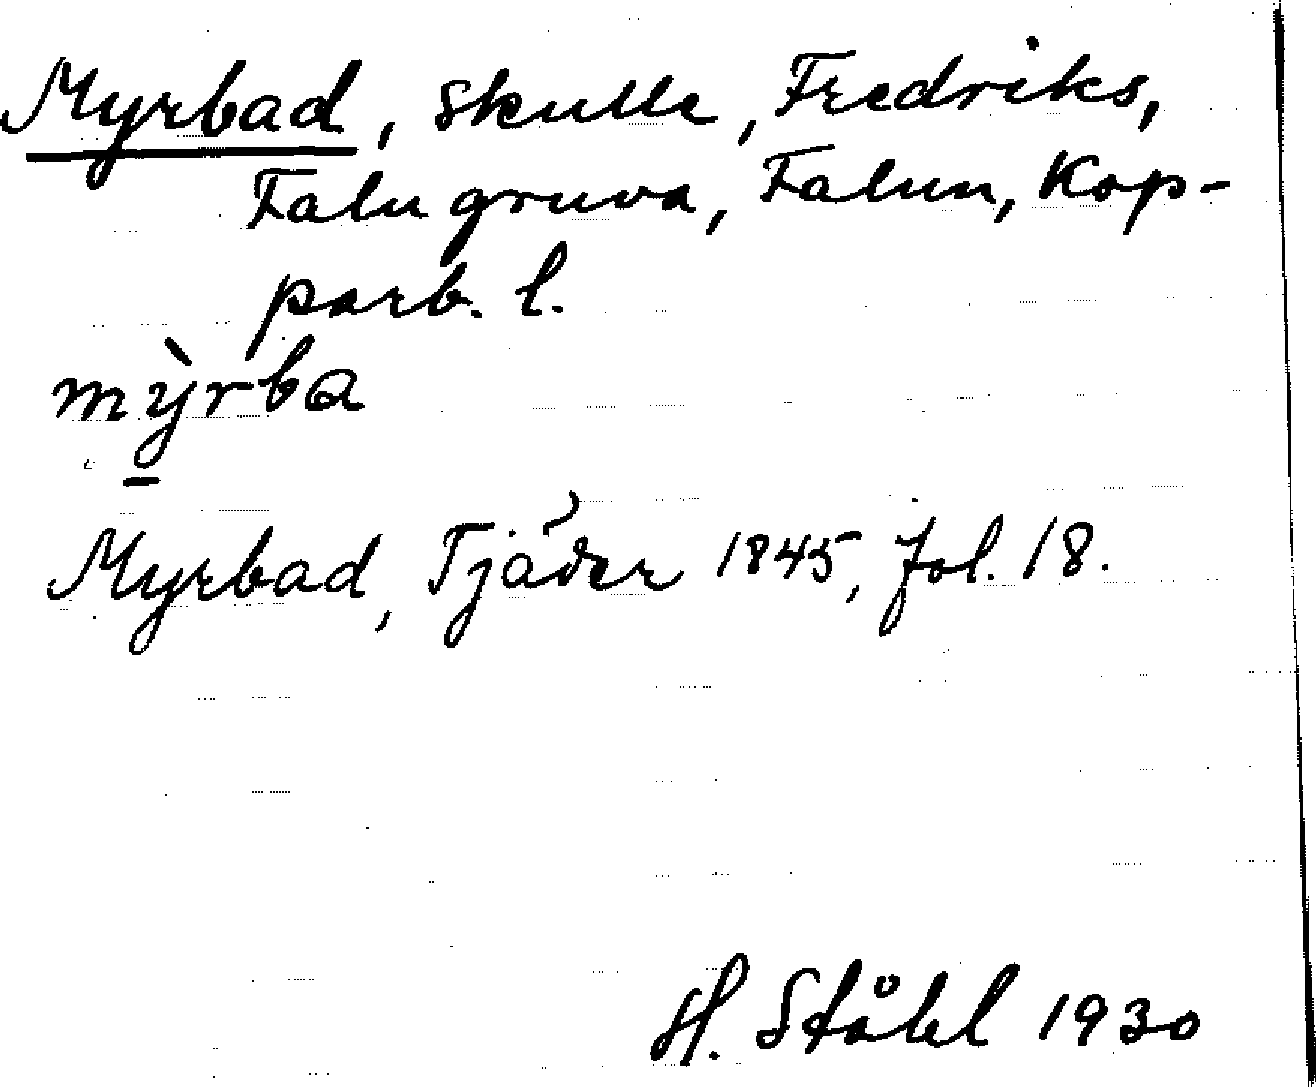 Myrbad, Skulle, Fredriks,
Falu gruva, Falun, Kop-
parb. l.
mỳrba
Myrbad, Tjäder 1845, fol. 18.
H. Ståhl 1930